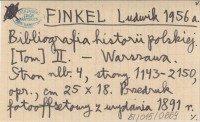 FINKEL Ludwik 1956 a.
Bibliografia historii polskiej.
[Tom] II. - Warszawa.
Stron nlb. 4, strony 1143-2150,
opr., cm 25 x 18. Przedruk
fotooffsetowy z wydania 1891 r.